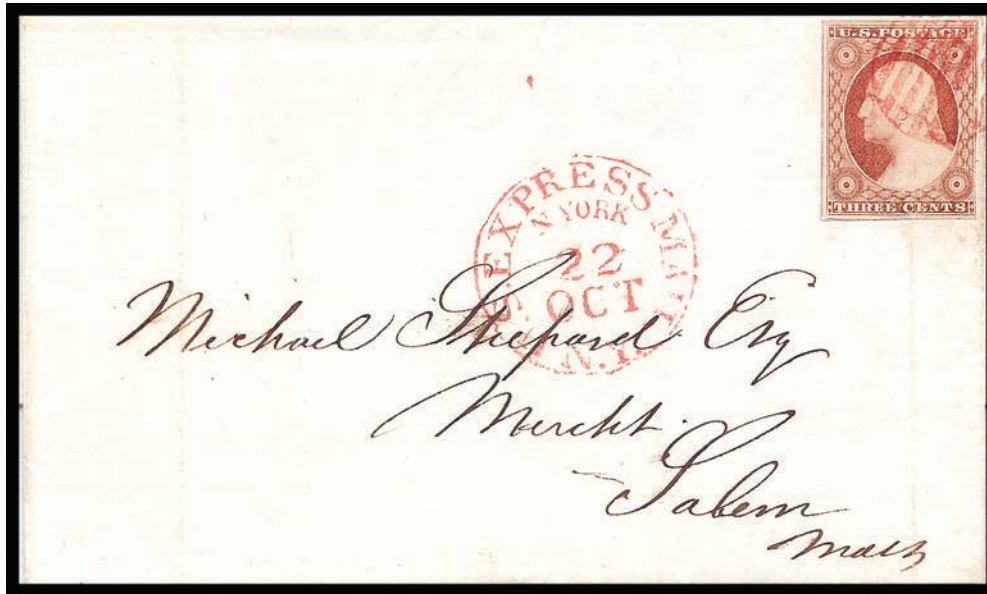 U.S. POSTAGE
THREE CENTS
U.S. EXPRESS MAIL
N YORK
22
OCT
N.Y.
Michael Shepard Esq
Mercht.
Salem
Mass